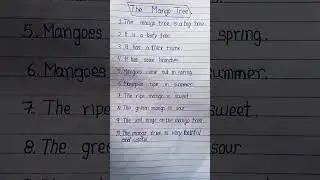 The Mango Tree
1. The mango tree is a big tree.
2. It is a leafy tree.
3. It has a thick trunk.
4. It has some branches.
5. Mangoes come out in spring.
6. Mangoes ripe in summer.
7. The ripe mango is sweet.
8. The green mango is sour.
9. The sings on the mango tree.
10. The mango tree is very
and useful.
5. Mangoes
spring.
6. Mangoes
summer.
7. The ripe
sweet.
8. The green
sour